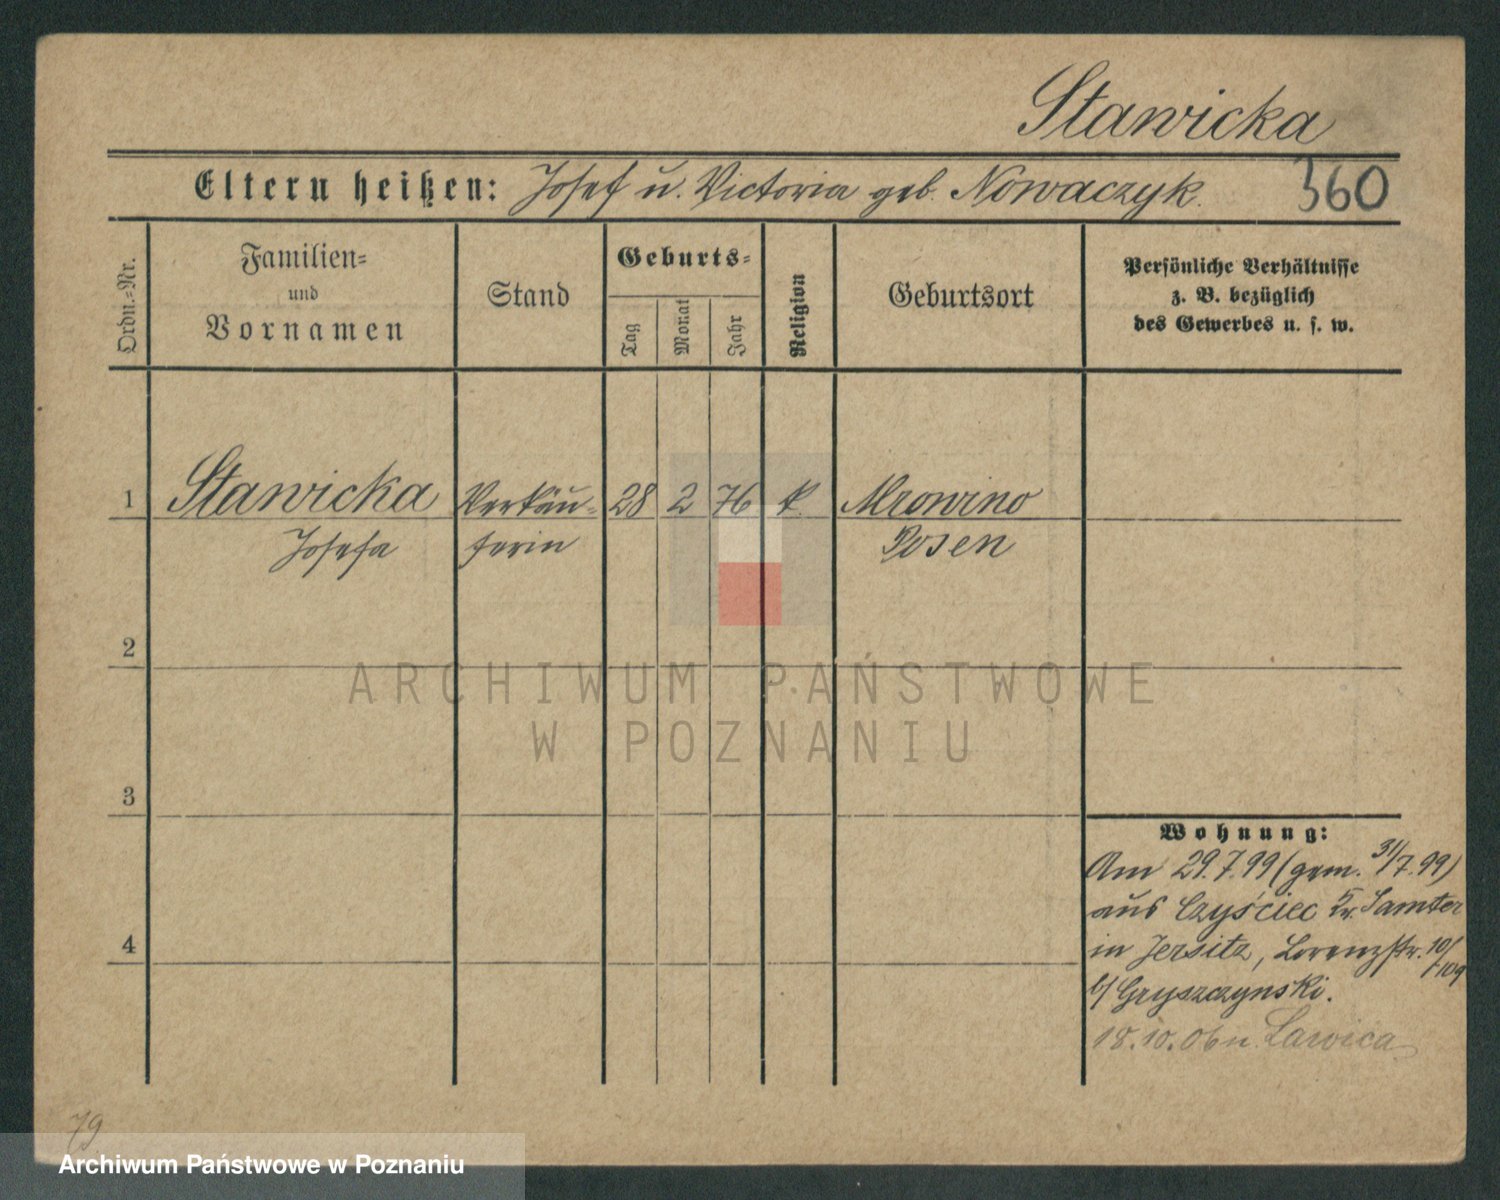 Stawicka
Eltern heißen: Josef u. Victoria geb. Nowaczyk.
360
Ordn.=Nr.
Familien=
und
Vornamen
Stand
Geburts=
Tag
Monat
Jahr
Religion
Geburtsort
Persönliche Verhältnisse
z. B. bezüglich
des Gewerbes u. s. w.
1 Stawicka Verkäu- 28 2 76 k. Mrowino
Josefa ferin Posen
2
3
4
Wohnung:
Am 29.7.99 (gem. 31/7.99)
aus Czyściec Kr. Samter
in Jersitz, Lorenzstr. 10/
b/ Gryszczynski.
18.10.06 n. Lawica
79
ARCHIWUM PAŃSTWOWE
W POZNANIU
Archiwum Państwowe w Poznaniu